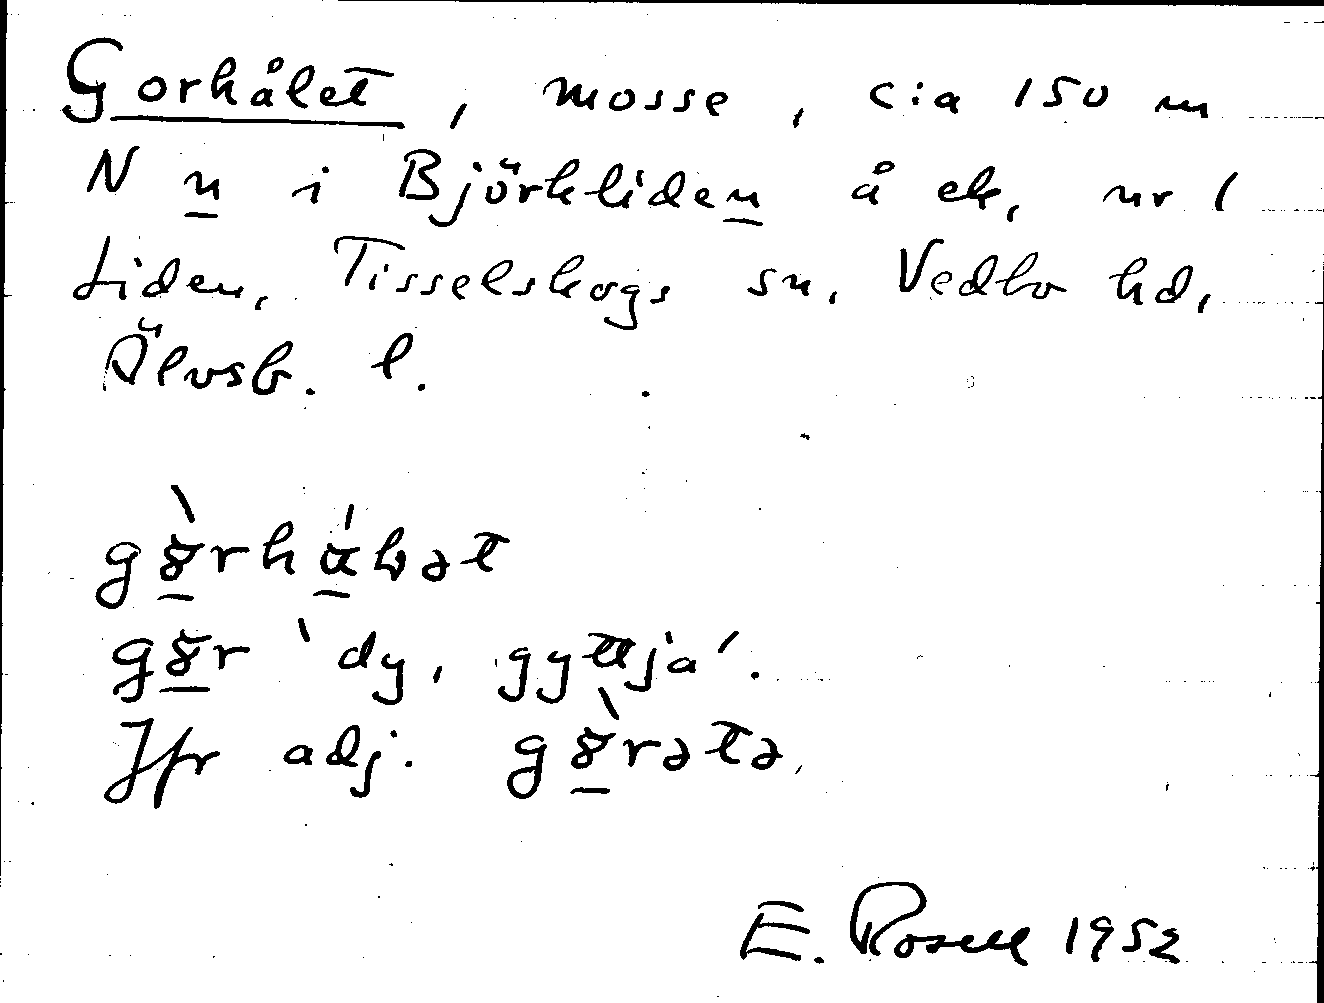 Gorhålet, mosse, c:a 150 m
N n i Björkliden å ek, nr 1
Liden, Tisselskogs sn, Vedbo hd,
Älvsb. l.
gȣ̀rhάɫət
gȣr 'dy, gyttja'.
Jfr adj. gȣ̀rətə,
E. Rosell 1952